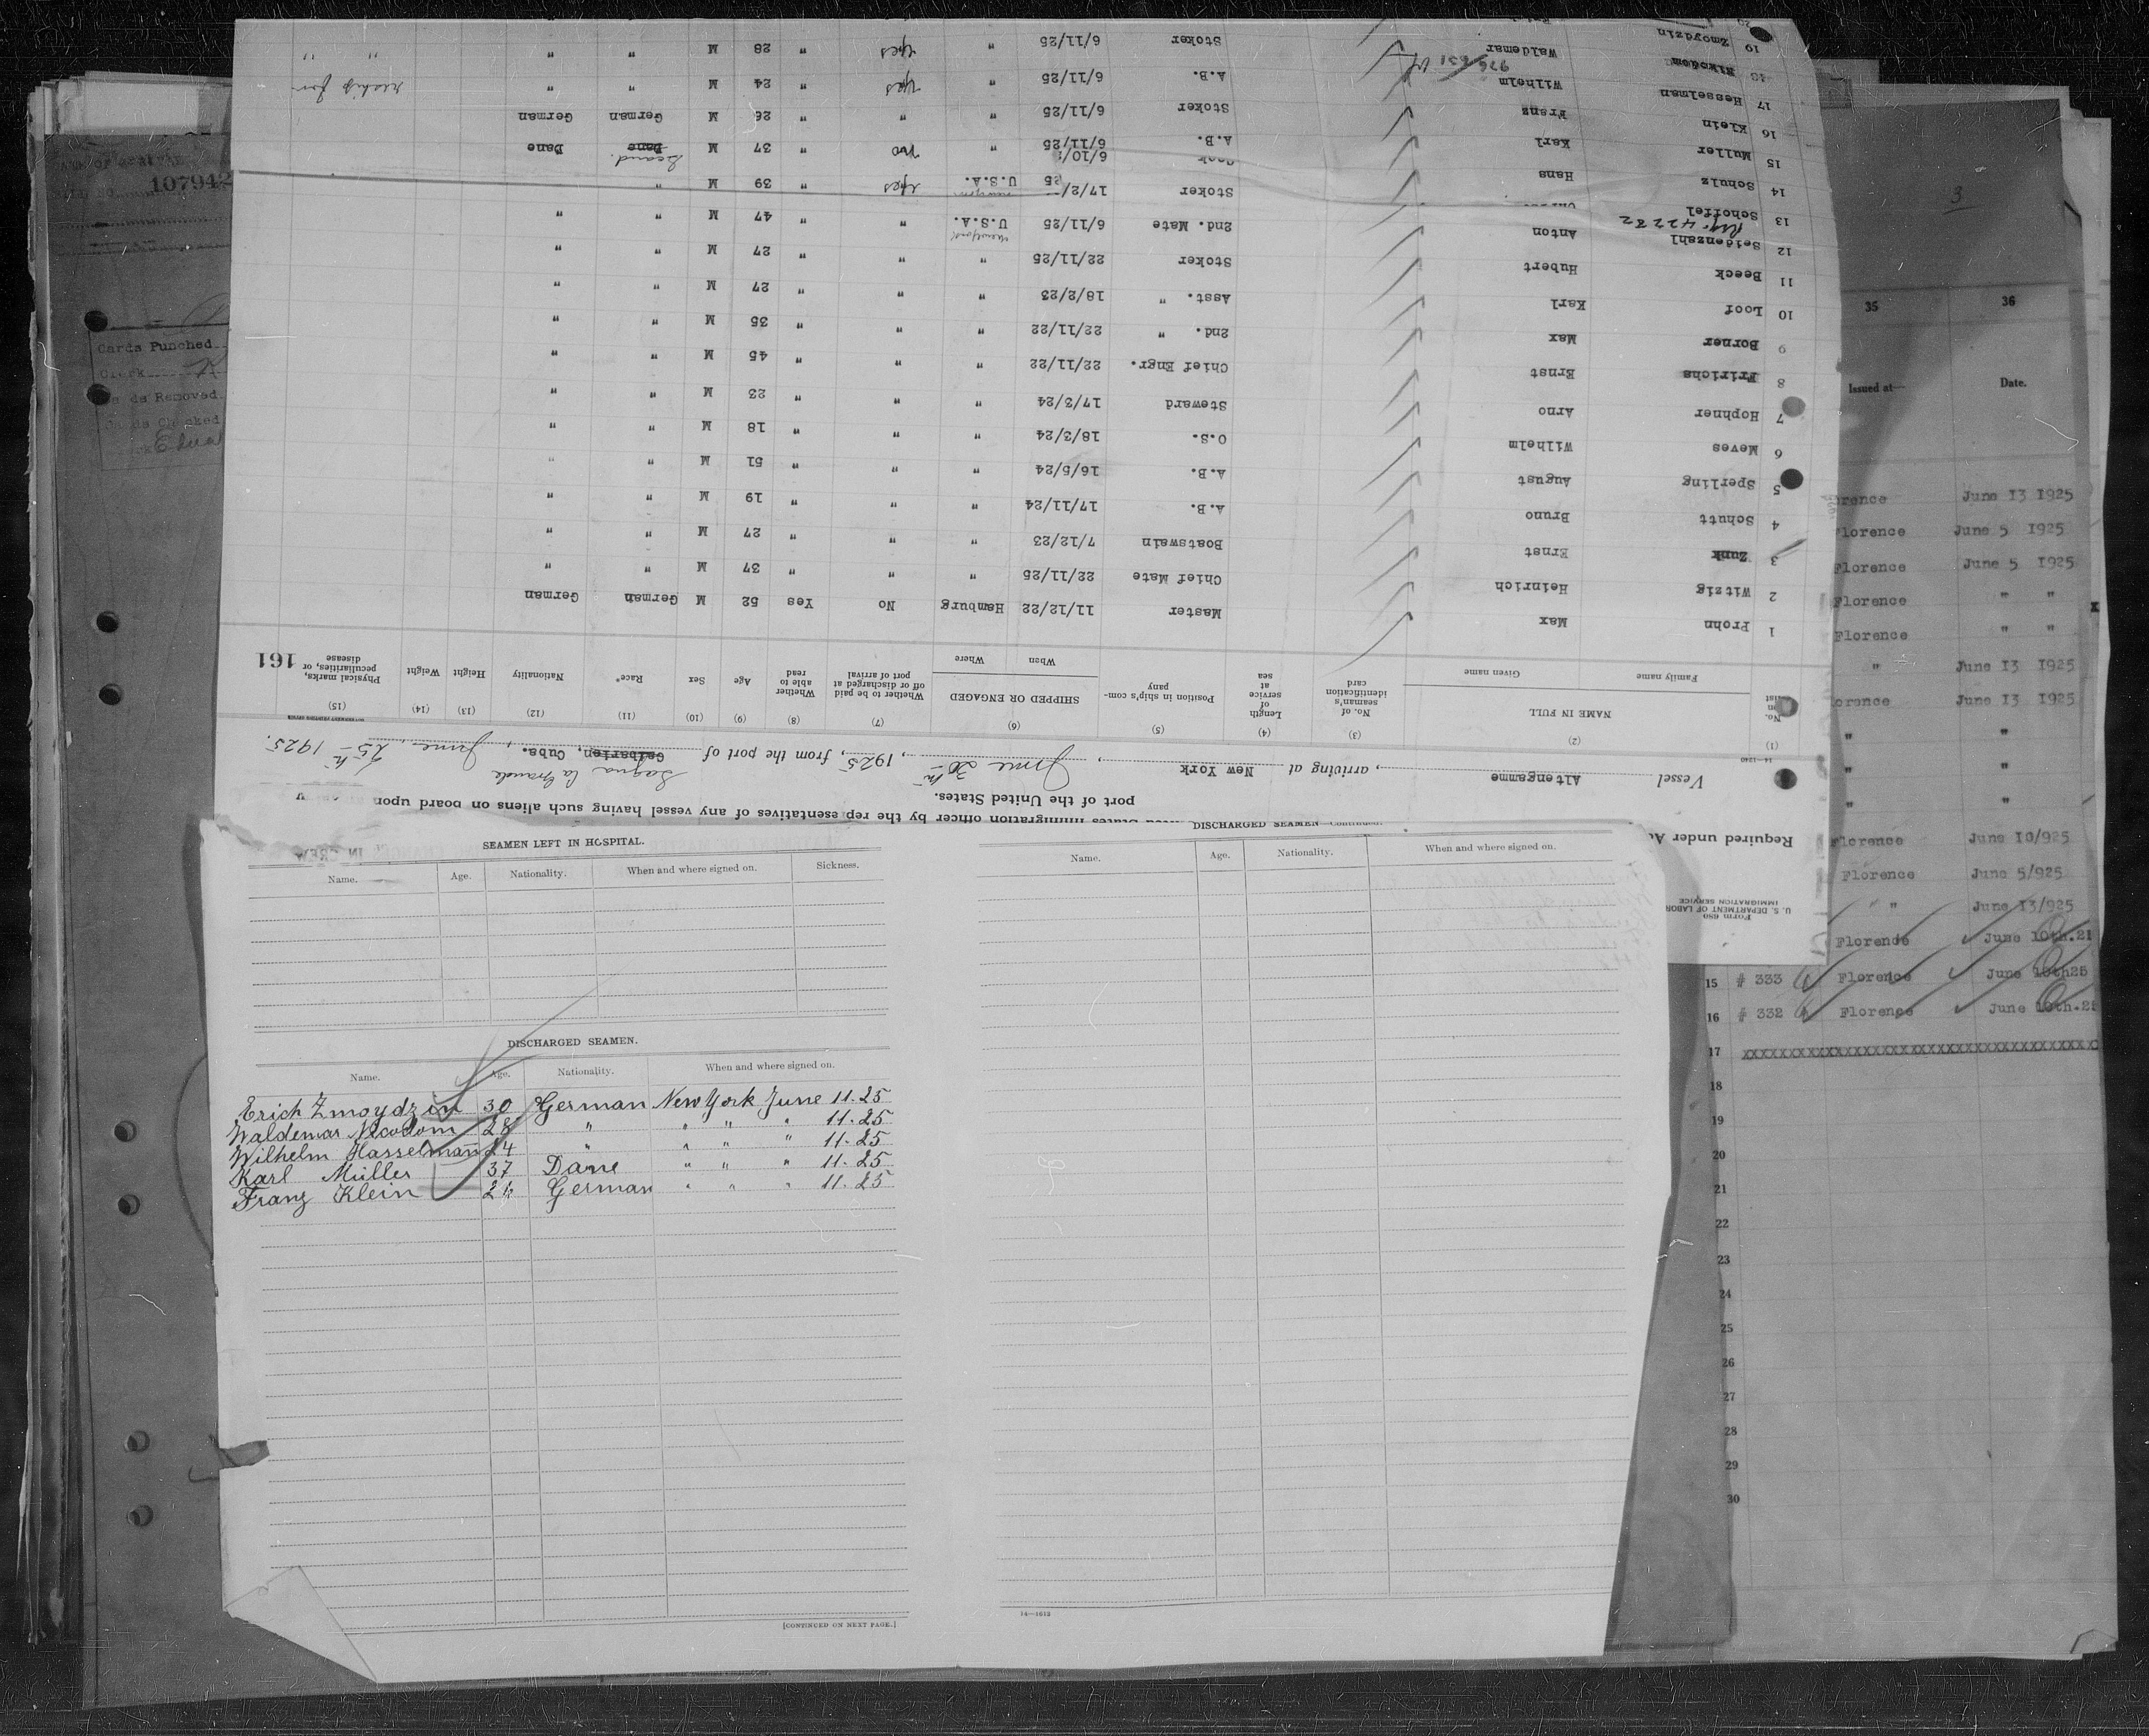 SEAMEN LEFT IN HOSPITAL.
Name. Age. Nationality. When and where signed on. Sickness.
DISCHARGED SEAMEN.
Name. Age. Nationality. When and where signed on.
Erich Zmoydzin 30 German New York June 11.25
Waldemar Nicodom 28 " " " " 11.25
Wilhelm Hasselmann 24 " " " " 11.25
Karl Müller 37 Dane " " " 11.25
Franz Klein 26 German " " " 11.25
[CONTINUED ON NEXT PAGE.]
DISCHARGED SEAMEN—Continued.
Name. Age. Nationality. When and where signed on.
14—1612
Form 680
U. S. DEPARTMENT OF LABOR
IMMIGRATION SERVICE
Required under
immigration officer by the representatives of any vessel having such aliens on board upon
port of the United States.
Vessel Altengamme, arriving at New York, June 30th, 1925, from the port of Caibarien, Cuba. Sagua la Grande, June 25th 1925.
14—1240
(1) (2) (3) (4) (5) (6) (7) (8) (9) (10) (11) (12) (13) (14) (15)
No. on list NAME IN FULL No. of seaman's identification card Length of service at sea Position in ship's company SHIPPED OR ENGAGED Whether to be paid off or discharged at port of arrival Whether able to read Age Sex Race* Nationality Height Weight Physical marks, peculiarities, or disease
Family name Given name When Where
161
1 Prohn Max Master 11/12/22 Hamburg No Yes 52 M German German
2 Witzig Heinrich Chief Mate 22/11/25 " " " 37 M " "
3 Zunk Ernst Boatswain 7/12/23 " " " 27 M " "
4 Schutt Bruno A.B. 17/11/24 " " " 19 M " "
5 Sperling August A.B. 16/5/24 " " " 51 M " "
6 Meves Wilhelm O.S. 18/3/24 " " " 18 M " "
7 Hophner Arno Steward 17/3/24 " " " 23 M " "
8 Fririchs Ernst Chief Engr. 22/11/22 " " " 45 M " "
9 Borner Max 2nd. " 22/11/22 " " " 35 M " "
10 Loof Karl Asst. " 18/2/23 " " " 27 M " "
11 Beeck Hubert Stoker 22/11/25 " " " 27 M " "
12 Seidenzahl Anton 2nd. Mate 6/11/25 New York U.S.A. " " 47 M " "
13 Schoffel Stoker 17/2/25 U.S.A. yes " 39 M "
14 Schulz Hans Cook 6/10/
15 Muller Karl A.B. 6/11/25 " no " 37 M Dane Scand. Dane
16 Klein Franz Stoker 6/11/25 " " " 26 M German German
17 Hesselman Wilhelm A.B. 6/11/25 " yes " 24 M " "
18 Nikodom Waldemar Stoker 6/11/25 " yes " 28 M " " " "
19 Zmoydzin
107942
Cards Punched
Clerk
Cards Removed
Cards Checked
3
35 36
Issued at— Date.
Florence June 13 1925
Florence June 5 1925
Florence June 5 1925
Florence " "
Florence " "
" June 13 1925
Florence June 13 1925
" "
" "
" "
Florence June 10/925
Florence June 5/925
" " June 13/925
Florence June 10th.21
15 # 333 Florence June 10th25
16 # 332 Florence June 10th.25
17 xxxxxxxxxxxxxxxxxxxxxxxxxxxxxxxxxxxxxx
18
19
20
21
22
23
24
25
26
27
28
29
30